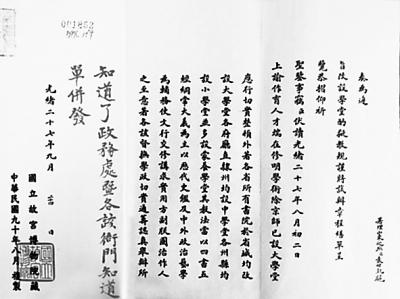 奏為遵
旨改設學堂酌擬教規謹將試辦章程繕單呈
覽恭摺仰祈
聖鑒事竊臣伏讀光緒二十七年八月初二日
上諭作育人才端在修明學術除京師已設大學堂
應行切實整頓外著各省所有書院於省城均改
設大學堂各府廳直隸州均設中學堂各州縣均
設小學堂並多設蒙養學堂其教法當以四書五
經綱常大義為主以歷代史鑑及中外政治藝學
為輔務使文行交修講求實用方副朕圖治作人
之至意著各該督撫學政切實通籌認真舉辦所
知道了政務處暨各該衙門知道
單併發
光緒二十七年九月 日
國立故宮博物院藏
中華民國九十年八月複製
001852